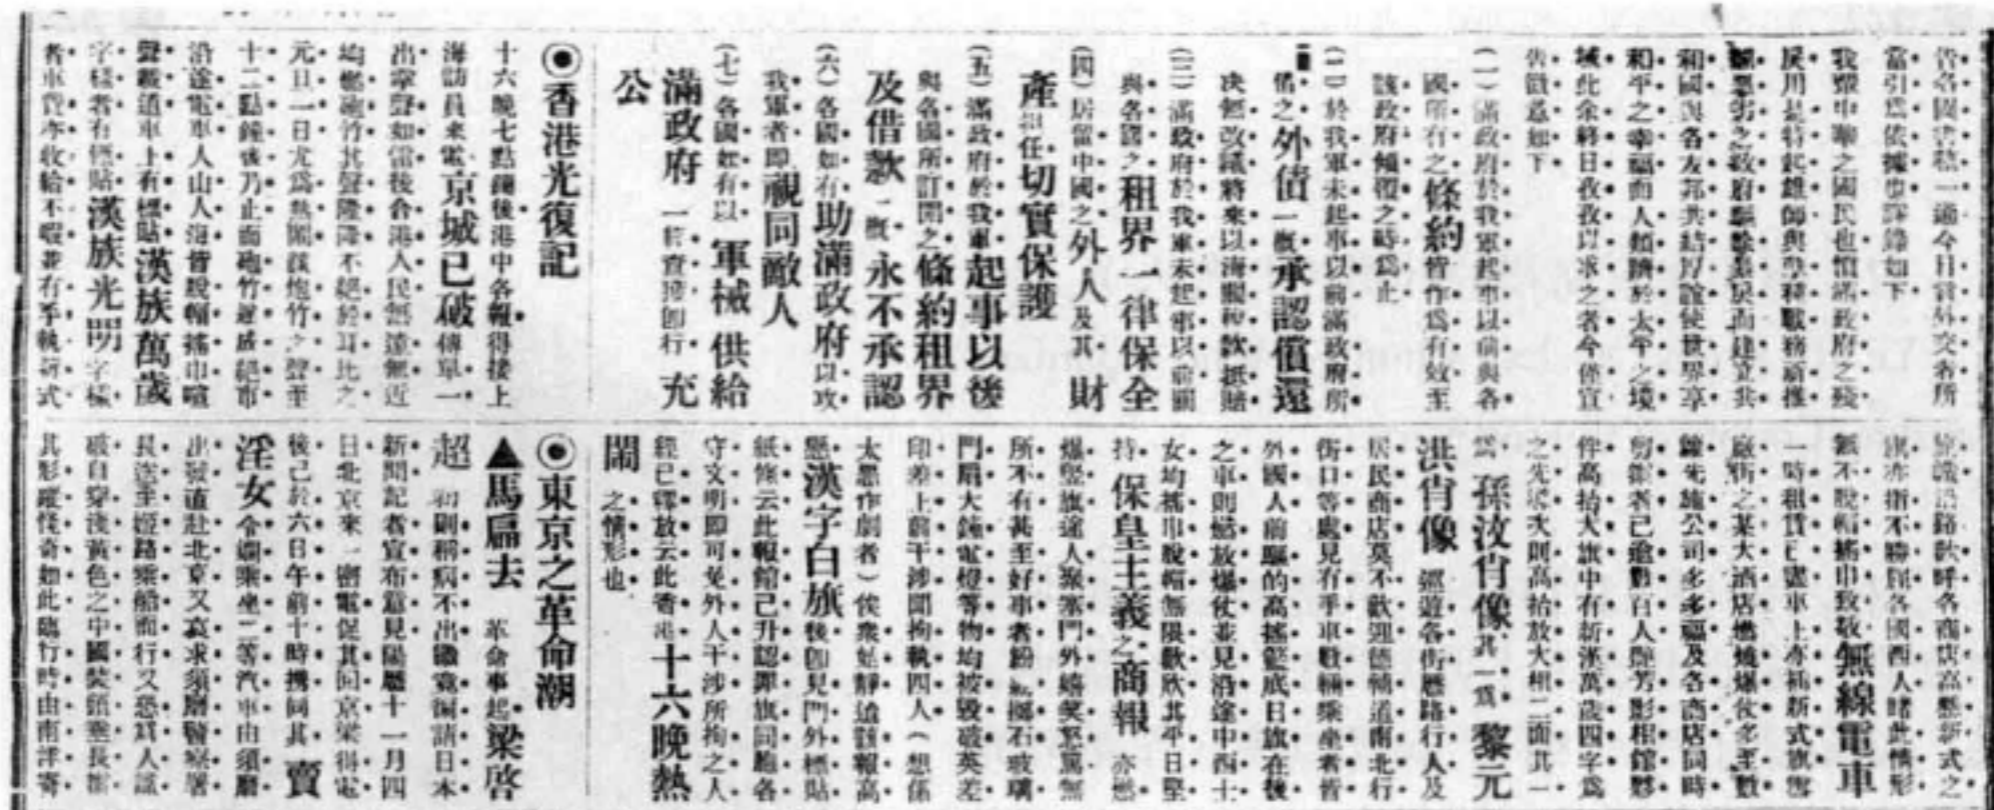 告各國書稿一通今日當外交者所
當引爲依據也譯錄如下
我漢中華之國民也憤滿政府之殘
民用是特起雄師與之
惡劣之政府驅除暴戾而建立共
和國與各友邦共結厚誼使世界享
和平之幸福而人類躋於太平之境
域此余終日孜孜以求之者今僅宣
告微意如下
(一)滿政府於我軍起事以前與各
國所有之條約皆作爲有效至
該政府傾覆之時爲止
(二)於我軍未起事以前滿政府所
借之外債一概承認償還
决無改議將來以海關稅款抵賠
(三)滿政府於我軍未起事以前
與各國之租界一律保全
(四)居留中國之外人及其財
產担任切實保護
(五)滿政府於我軍起事以後
與各國所訂開之條約租界
及借款一概永不承認
(六)各國如有助滿政府以攻
我軍者即視同敵人
(七)各國如有以軍械供給
滿政府一經查獲卽行充
公
◉香港光復記
十六晚七點鐘後港中各報得接上
海訪員來電京城已破傳單一
出掌聲如雷後合港人民無遠無近
均燃砲竹其聲隆隆不絕於耳比之
元旦一日尤爲熱鬧後炮竹之聲至
十二點鐘後乃止而砲竹
沿途電車人山人海皆脫帽搖巾喧
聲載道車上有標貼漢族萬歲
字樣者有標貼漢族光明字樣
者車費亦收給不暇並有手執新式
旗幟沿路歡呼各商店高懸新式之
旗亦指不勝屈各國西人睹此情形
無不脫帽搖巾致敬無線電車
一時租賃已盡車上亦插新式旗幟
街之某大酒店燃燒爆仗多至數
先施公司多多福及各商店同時
剪辮者已逾數百人艷芳影相館夥
伴高抬大旗中有新漢萬歲四字爲
之先次則高抬放大相二面其一
爲孫汶肖像其一爲黎元
洪肖像巡遊各街歷路行人及
居民商店莫不歡迎德輔道南北行
街口等處見有手車數輛乘坐者皆
外國人前驅的高搖籃底日旗在後
之車則燃放爆仗並見沿途中西士
女均搖巾脫帽無限歡欣其平日堅
持保皇主義之商報亦燃
爆竪旗途人聚塞門外嬉笑怒罵無
所不有甚至好事者紛紛擲石玻璃
門扇大鐘電燈等物均被毀破英差
印差上前干涉聞拘執四人(想係
太惡作劇者)俟衆始靜迨該報高
懸漢字白旗後卽見門外標貼
紙條云此報館已升認罪旗同胞各
守文明即可免外人干涉所拘之人
經已釋放云此香港十六晚熱
鬧之情形也
◉東京之革命潮
▲馬扁去 革命事起梁啓
超初則稱病不出繼竟謝請日本
新聞記者宣布意見陽曆十一月四
日北京來一密電促其回京梁得電
後已於六日午前十時携同其賣
淫女令嫻乘坐二等汽車由須磨
出發直赴北京又哀求須磨警察署
長送至路乘船而行又恐爲人識
破自穿淺黃色之中國裝頭垂長辮
其形蹤怪奇如此臨行時由南洋寄